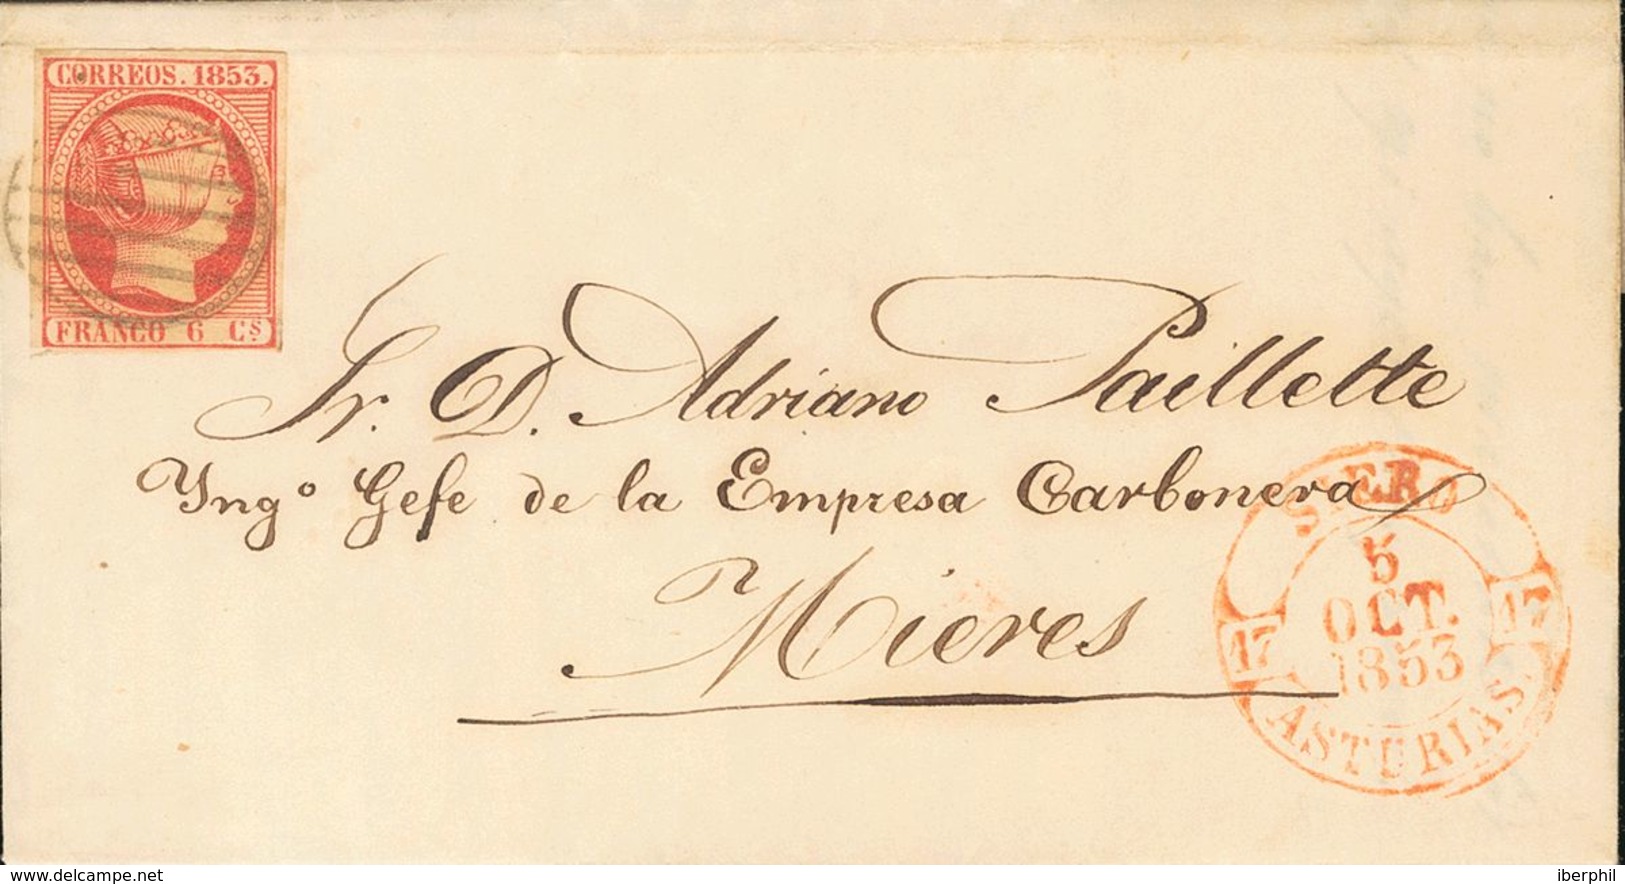 CORREOS. 1853.
FRANCO 6 Cs
Sr. D. Adriano Paillette
Yngo Gefe de la Empresa Carbonera
Mieres
SIERO
5
OCT.
1853
17
17
ASTURIAS.
delcampe.net
iberphil